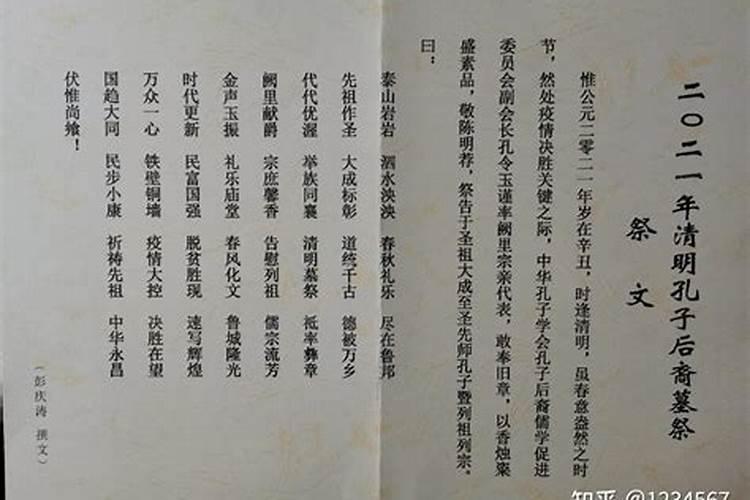 二〇二一年清明孔子后裔墓祭
祭文
惟公元二零二一年岁在辛丑，时逢清明，虽春意盎然之时
节，然处疫情决胜关键之际，中华孔子学会孔子后裔儒学促进
委员会副会长孔令玉谨率阙里宗亲代表，敢奉旧章，以香烛粢
盛素品，敬陈明荐，祭告于圣祖大成至圣先师孔子暨列祖列宗。
曰：
泰山岩岩 泗水泱泱 春秋礼乐 尽在鲁邦
先祖作圣 大成标彰 道统千古 德被万乡
代代优渥 举族同襄 清明墓祭 祗率彝章
阙里献爵 宗庶馨香 告慰列祖 儒宗流芳
金声玉振 礼乐庙堂 春风化文 鲁城隆光
时代更新 民富国强 脱贫胜现 速写辉煌
万众一心 铁壁铜墙 疫情大控 决胜在望
国趋大同 民步小康 祈祷先祖 中华永昌
伏惟尚飨！
（彭庆涛 撰文）
知乎 @1234567